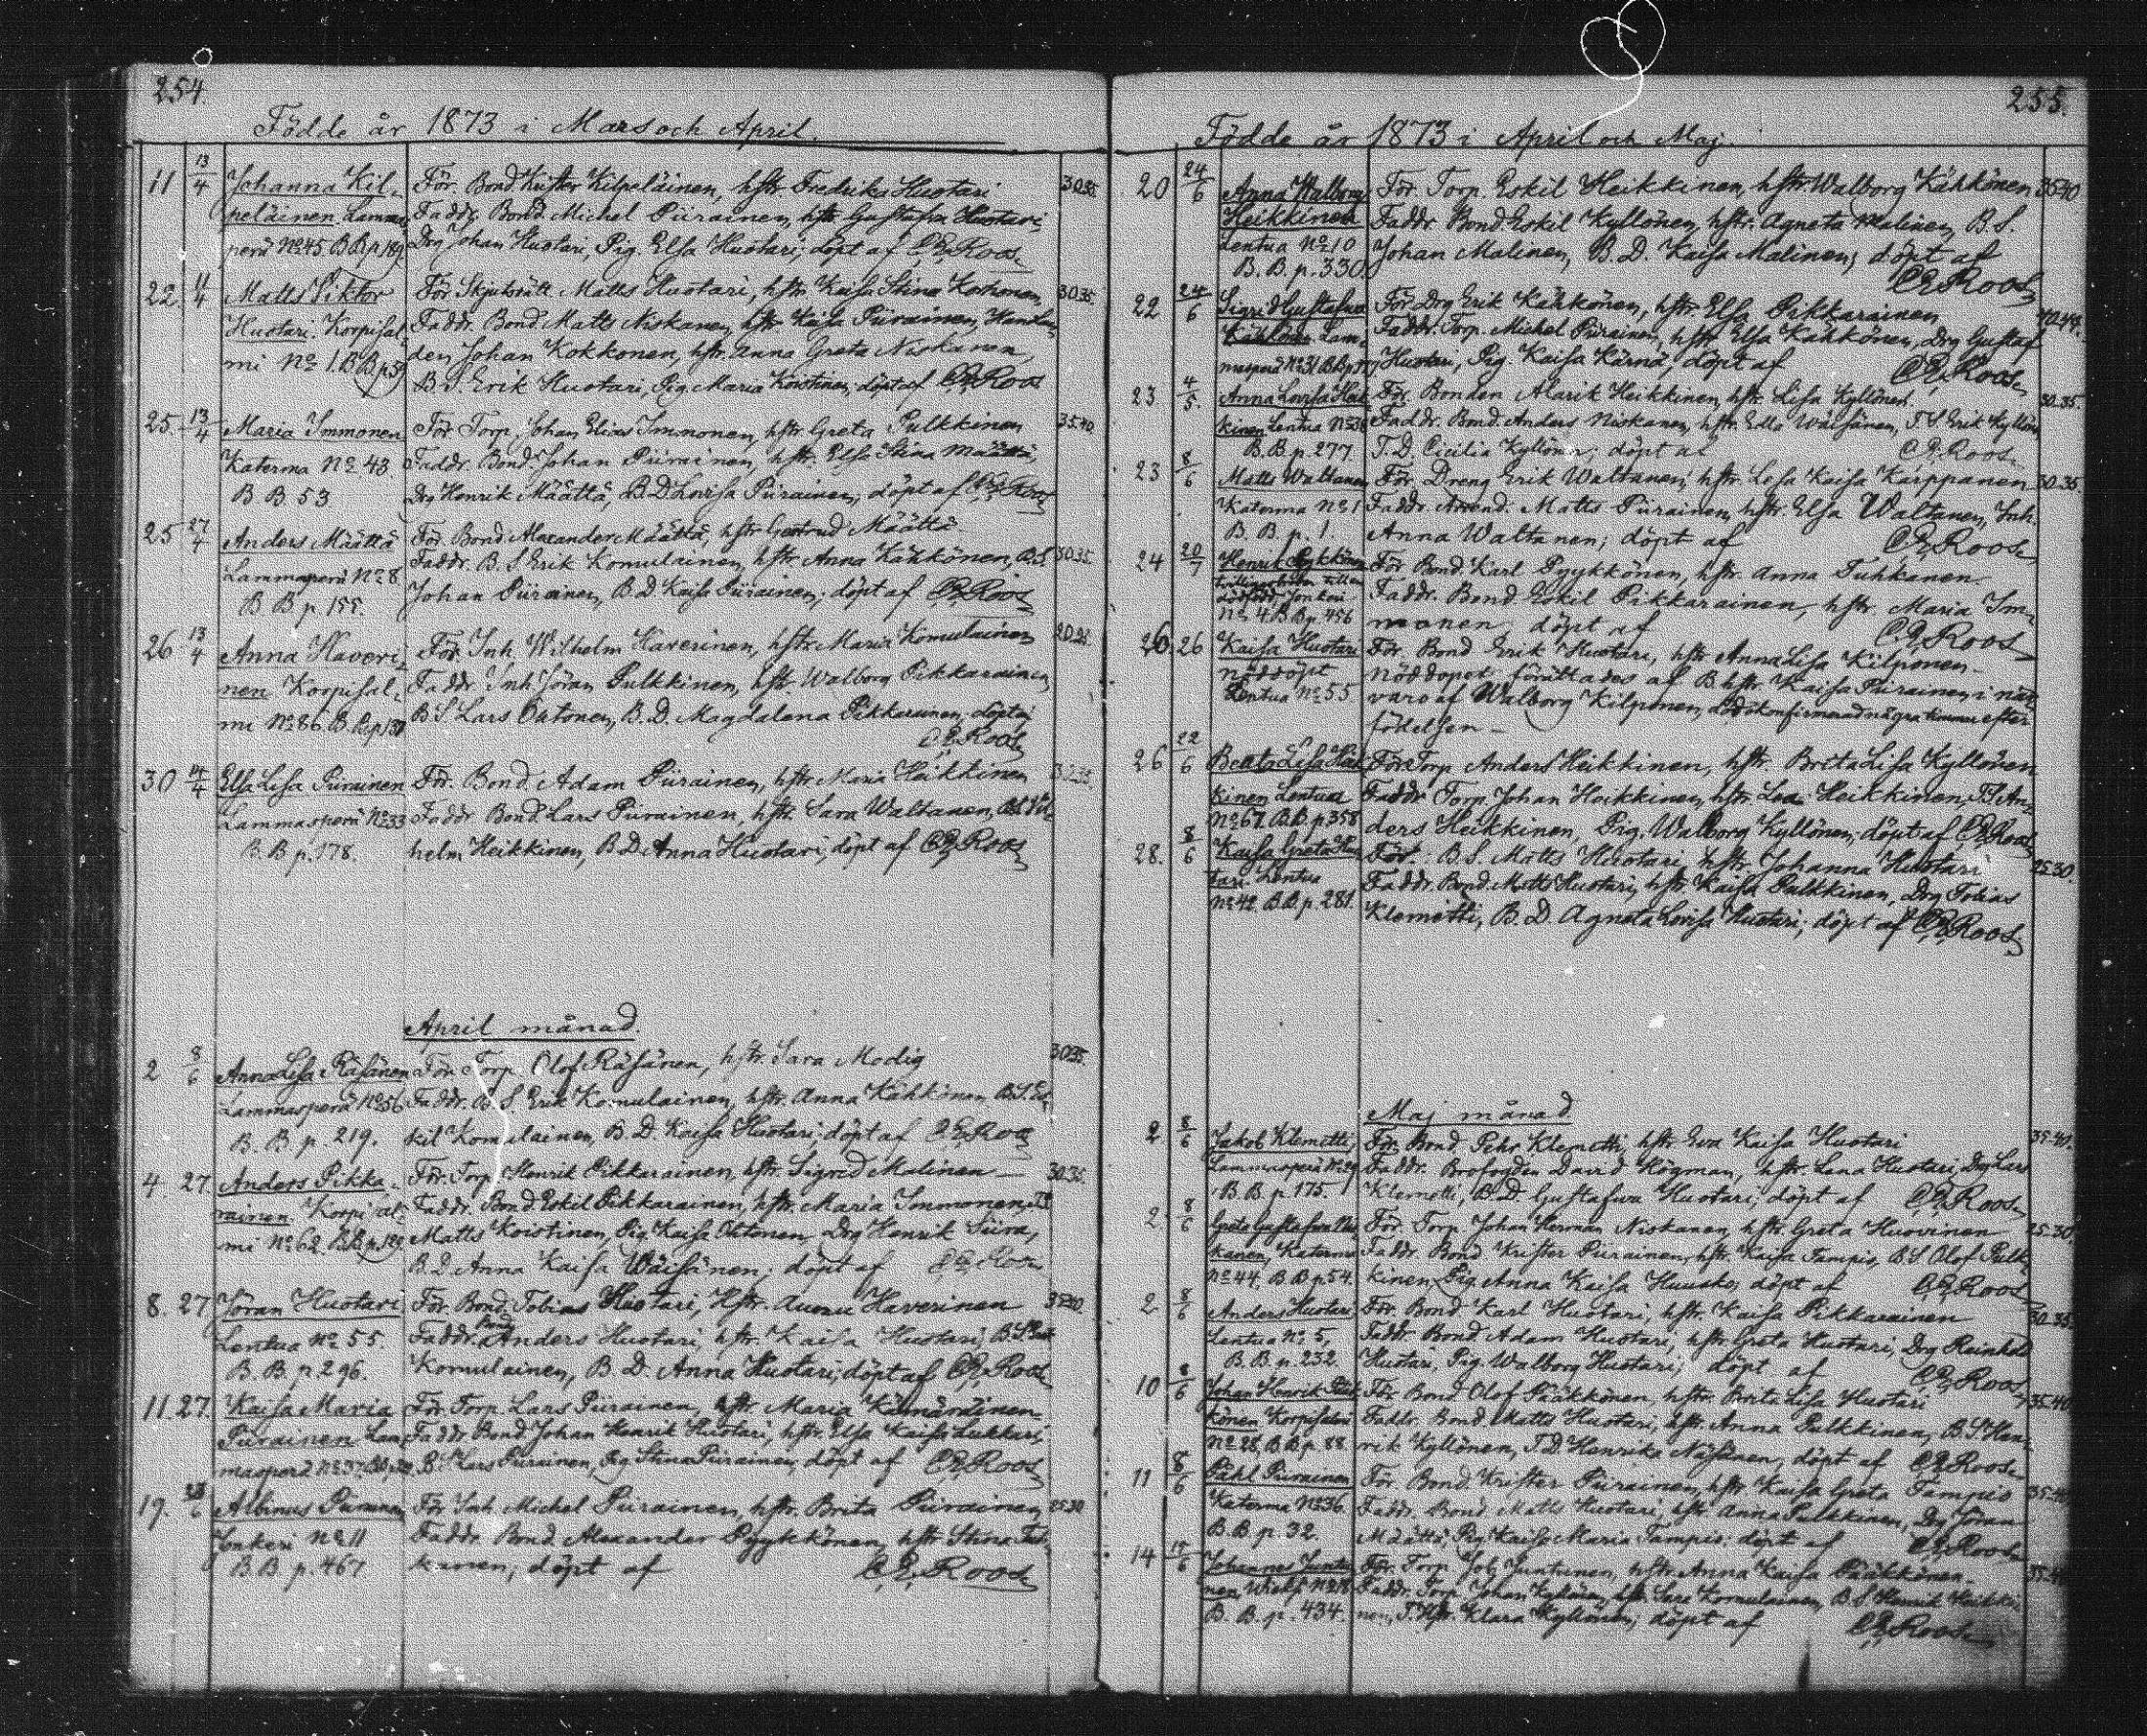 254.
Födde år 1873 i Mars och April.
11 13/4 Johanna Kil- För. Bond Krister Kilpeläinen, hstr. Fredrika Huotari 30.35.
peläinen Lammas- Faddr. Bond. Michel Piirainen, hstr. Gustafva Huotari
perä No 45. B.B.p.189. Drg Johan Huotari, Pig. Elsa Huotari; döpt af C.E.Roos.
22. 11/4 Matts Viktor För. Skjutsrätt. Matts Huotari, hstr. Kaisa Stina Korhonen, 30.35.
Huotari. Korpisal- Faddr. Bond Matts Niskanen, hstr. Kaisa Piirainen,
mi No 1. B.B.p.59 den Johan Kokkonen, hstr. Anna Greta Niskanen,
B.S. Erik Huotari, Pig. Maria Koistinen, döpt af C.E.Roos
25. 13/4 Maria Immonen För. Torp. Johan Elias Immonen, hstr. Greta Pulkkinen 35.40.
Katerma No 43. Faddr. Bond. Johan Piirainen, hstr. Elsa Stina Määttä,
B.B 53 Drg Henrik Määttä, B.D Lovisa Piirainen, döpt af C.E.Roos
25 27/4 Anders Määttä För. Bond Alexander Määttä, hstr. Gertrud Määttä
Lammasperä No 8. Faddr. B.S Erik Komulainen, hstr. Anna Kähkönen, B.S. 30.35.
B B p. 155. Johan Piirainen, B.D Kaisa Piirainen; döpt af C.E.Roos
26 13/4 Anna Haveri- För. Inh. Wilhelm Haverinen, hstr. Maria Komulainen 20.25.
nen Korpisal- Faddr. Inh. Jöran Pulkkinen, hstr. Walborg Pikkarainen
mi No 86. B.B.p.137 B.S. Lars Ohtonen, B.D. Magdalena Pikkarainen, döpt af
C.E.Roos
30 14/4 Elsa Lisa Piirainen För. Bond. Adam Piirainen, hstr. Maria Heikkinen
Lammasperä No 33 Faddr. Bond Lars Piirainen, hstr. Sara Waltanen, B.S. Wil-
B.B p. 178. helm Heikkinen, B.D Anna Huotari; döpt af C.E.Roos
April månad.
2 8/6 Anna Lisa Räisänen För. Torp. Olof Räisänen, hstr. Sara Modig 30.35.
Lammasperä No 56 Faddr. B.S. Erik Komulainen, hstr. Anna Kähkönen, B.S. Es-
B. B. p. 219. kil Komulainen, B.D. Kaisa Huotari; döpt af C.E.Roos
4. 27. Anders Pikka- För. Torp. Henrik Pikkarainen, hstr. Sigrid Malinen 30.35.
rainen Korpisal- Faddr. Bond. Eskil Pikkarainen, hstr. Maria Immonen,
mi No 62. B.B.p.129. Matts Koistinen, Pig. Kaisa Ohtonen Drg Henrik Siira,
B.D. Anna Kaisa Wäisänen; döpt af C.E.Roos
8. 27 Jöran Huotari För. Bond. Tobias Huotari, Hstr. Haverinen 35.40.
Lentua No 55. Faddr. Bond Anders Huotari, hstr. Kaisa Huotari, B.S.
B. B. p. 296. Komulainen, B.D. Anna Huotari; döpt af C.E.Roos
11. 27. Kaisa Maria För. Torp. Lars Piirainen, hstr. Maria Kämäräinen
Piirainen Lam- Faddr. Bond Johan Henrik Huotari, hstr. Elsa Kaisa Lukkari,
masperä No 37. B.S. Lars Piirainen, Pig Stina Piirainen; döpt af C.E.Roos
19. Albinus Piirainen För. Inh. Michel Piirainen, hstr. Brita Piirainen,
Jonkeri No 11 Faddr. Bond. Alexander Pyykkönen, hstr. Stina Tuh-
B.B. p. 467 kanen; döpt af C.E.Roos
255.
Födde år 1873 i April och Maj.
20 24/6 Anna Walborg För. Torp. Eskil Heikkinen, hstr. Walborg Kähkönen 35.40
Heikkinen Faddr. Bond. Eskil Kyllönen, hstr. Agneta Malinen, B.S.
Lentua No 10 Johan Malinen, B.D. Kaisa Malinen; döpt af
B. B. p. 330. C.E.Roos
22 24/6 Sigrid Gustafva För. Drg Erik Kähkönen, hstr. Elsa Pikkarainen 40.44.
Kähkönen Lam- Faddr. Torp. Michel Piirainen, hstr. Elsa Kähkönen, Drg Gustaf
masperä No 31 Huotari, Pig. Kaisa Kärnä; döpt af C.E.Roos
23 4/5. Anna Lovisa Heik- För. Bonden Alarik Heikkinen, hstr. Lisa Kyllönen 30.35.
kinen Lentua No 38 Faddr. Bond. Anders Niskanen, hstr. Ella Wäisänen, T.S Erik Kyllön
B.B p. 277. T.D. Cicilia Kyllönen; döpt af C.E.Roos
23 8/6 Matts Waltanen För. Dreng Erik Waltanen, hstr. Lisa Kaisa Karppanen 30.35.
Katerma No 1 Faddr. Matts Piirainen, hstr. Elsa Waltanen, Inh.
B. B. p. 1. Anna Waltanen; döpt af C.E.Roos
24 20/7 Henrik Pyykkönen För. Bond Karl Pyykkönen, hstr. Anna Tuhkanen
Jonkeri Faddr. Bond. Eskil Pikkarainen, hstr. Maria Im-
No 4 B.B.p. 456 monen; döpt af C.E.Roos
26. 26 Kaisa Huotari För. Bond Erik Huotari, hstr. Anna Lisa Kilponen
nöddöpt Nöddopet förättades af B. hstr. Kaisa Piirainen i när-
Lentua No 55. varo af Walborg Kilponen, några timmar efter
födelsen
26 22/6 Beata Lisa Heik- För. Torp Anders Heikkinen, hstr. Brita Lisa Kyllönen
kinen Lentua Faddr. Torp. Johan Heikkinen, hstr. Lea Heikkinen, T.S An-
No 67. B.B.p.358 ders Heikkinen, Pig. Walborg Kyllönen; döpt af C.E.Roos
28. 8/6 Kaisa Greta Huo- För. B.S. Matts Huotari, hstr. Johanna Huotari 25.30.
tari. Lentua Faddr. Bond. Matts Huotari, hstr. Kaisa Pulkkinen, Drg Tobias
No 42. B.B.p. 281. Klemetti, B.D. Agneta Lovisa Huotari; döpt af C.E.Roos.
Maj månad
2 8/6 Jakob Klemetti, För. Bond. Pehr Klemetti, hstr. Eva Kaisa Huotari 35.40.
Lammasperä No 29 Faddr. Brofogden David Högman, hstr. Lena Huotari, Drg Lars
B.B. p. 175. Klemetti, B.D. Gustafva Huotari; döpt af C.E.Roos
2. 8/6 Greta Gustafva Nis- För. Torp. Johan Herman Niskanen, hstr. Greta Huovinen 25.30.
kanen, Katerma Faddr. Bond. Krister Piirainen, hstr. Kaisa Tampio, B.S. Olof Pulk-
No 44, B.B.p.54. kinen, Pig. Anna Kaisa Huusko; döpt af C.E.Roos
2 8/6 Anders Huotari För. Bond Karl Huotari, hstr. Kaisa Pikkarainen 30.35.
Lentua No 5. Faddr. Bond Adam Huotari, hstr. Greta Huotari, Drg Reinhold
B.B.p. 232 Huotari, Pig. Walborg Huotari; döpt af C.E.Roos
10 8/6 Johan Henrik Pääk- För. Bond Olof Pääkkönen, hstr. Brita Lisa Huotari 35.40
könen Korpisalmi Faddr. Bond Matts Huotari, hstr. Anna Pulkkinen, B.S Hen-
No 28, B.B.p. 88. rik Kyllönen, T.D. Henrika Näsänen, döpt af C.E.Roos
11 8/6 Påhl Piirainen För. Bond. Krister Piirainen, hstr. Kaisa Greta Tampio 35.40
Katerma No 36. Faddr. Bond. Matts Huotari, hstr. Anna Pulkkinen, Drg Jöran
B.B.p. 32. Määttä, Pig. Kaisa Maria Tampio; döpt af C.E.Roos
14 Johannes Juntu- För. Torp. Job Juntunen, hstr. Anna Kaisa Pääkkönen
nen Faddr. Torp. Johan Kyllönen, hstr. Sara Komulainen, B.S Henrik Heikki-
B. B. p. 434. nen, T. Hstr. Klara Kyllönen; döpt af C.E.Roos